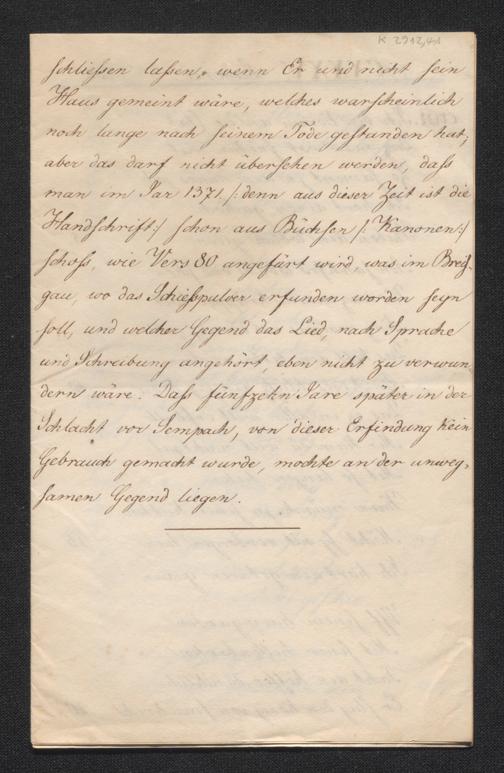 K 2912,41
schließen laßen, wenn Er und nicht sein
Haus gemeint wäre, welches warscheinlich
noch lange nach seinem Tode gestanden hat;
aber das darf nicht übersehen werden, daß
man im Jar 1371 /: denn aus dieser Zeit ist die
Handschrift :/ schon aus Büchsen /: Kanonen :/
schoß, wie Vers 80 angefürt wird, was im Breiß-
gau, wo das Schießpulver erfunden worden seyn
soll, und welcher Gegend das Lied, nach Sprache
und Schreibung angehört, eben nicht zu verwun-
dern wäre. Daß fünfzehn Jare später in der
Schlacht vor Sempach, von dieser Erfindung kein
Gebrauch gemacht wurde, mochte an der unweg-
samen Gegend liegen.